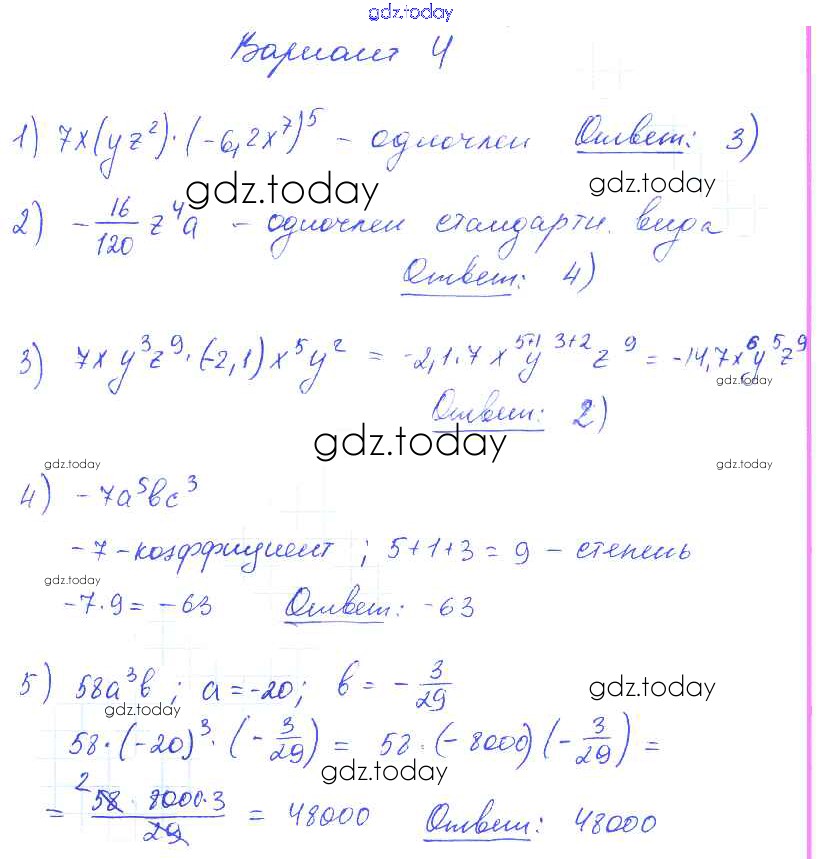 gdz.today
Вариант 4
1) 7x(yz²)·(-6,2x⁷)⁵ – одночлен Ответ: 3)
gdz.today gdz.today
2) -16/120 z⁴a – одночлен стандартн. вида
Ответ: 4)
3) 7xy³z⁹·(-2,1)x⁵y² = -2,1·7x⁵⁺¹y³⁺²z⁹ = -14,7x⁶y⁵z⁹
gdz.today
Ответ: 2)
gdz.today
gdz.today gdz.today
4) -7a⁵bc³
-7 – коэффициент; 5+1+3=9 – степень
gdz.today
-7·9 = -63 Ответ: -63
5) 58a³b; a=-20; b=-3/29
gdz.today
gdz.today
58·(-20)³·(-3/29) = 58·(-8000)(-3/29) =
gdz.today
= 2 58·8000·3/29 = 48000 Ответ: 48000